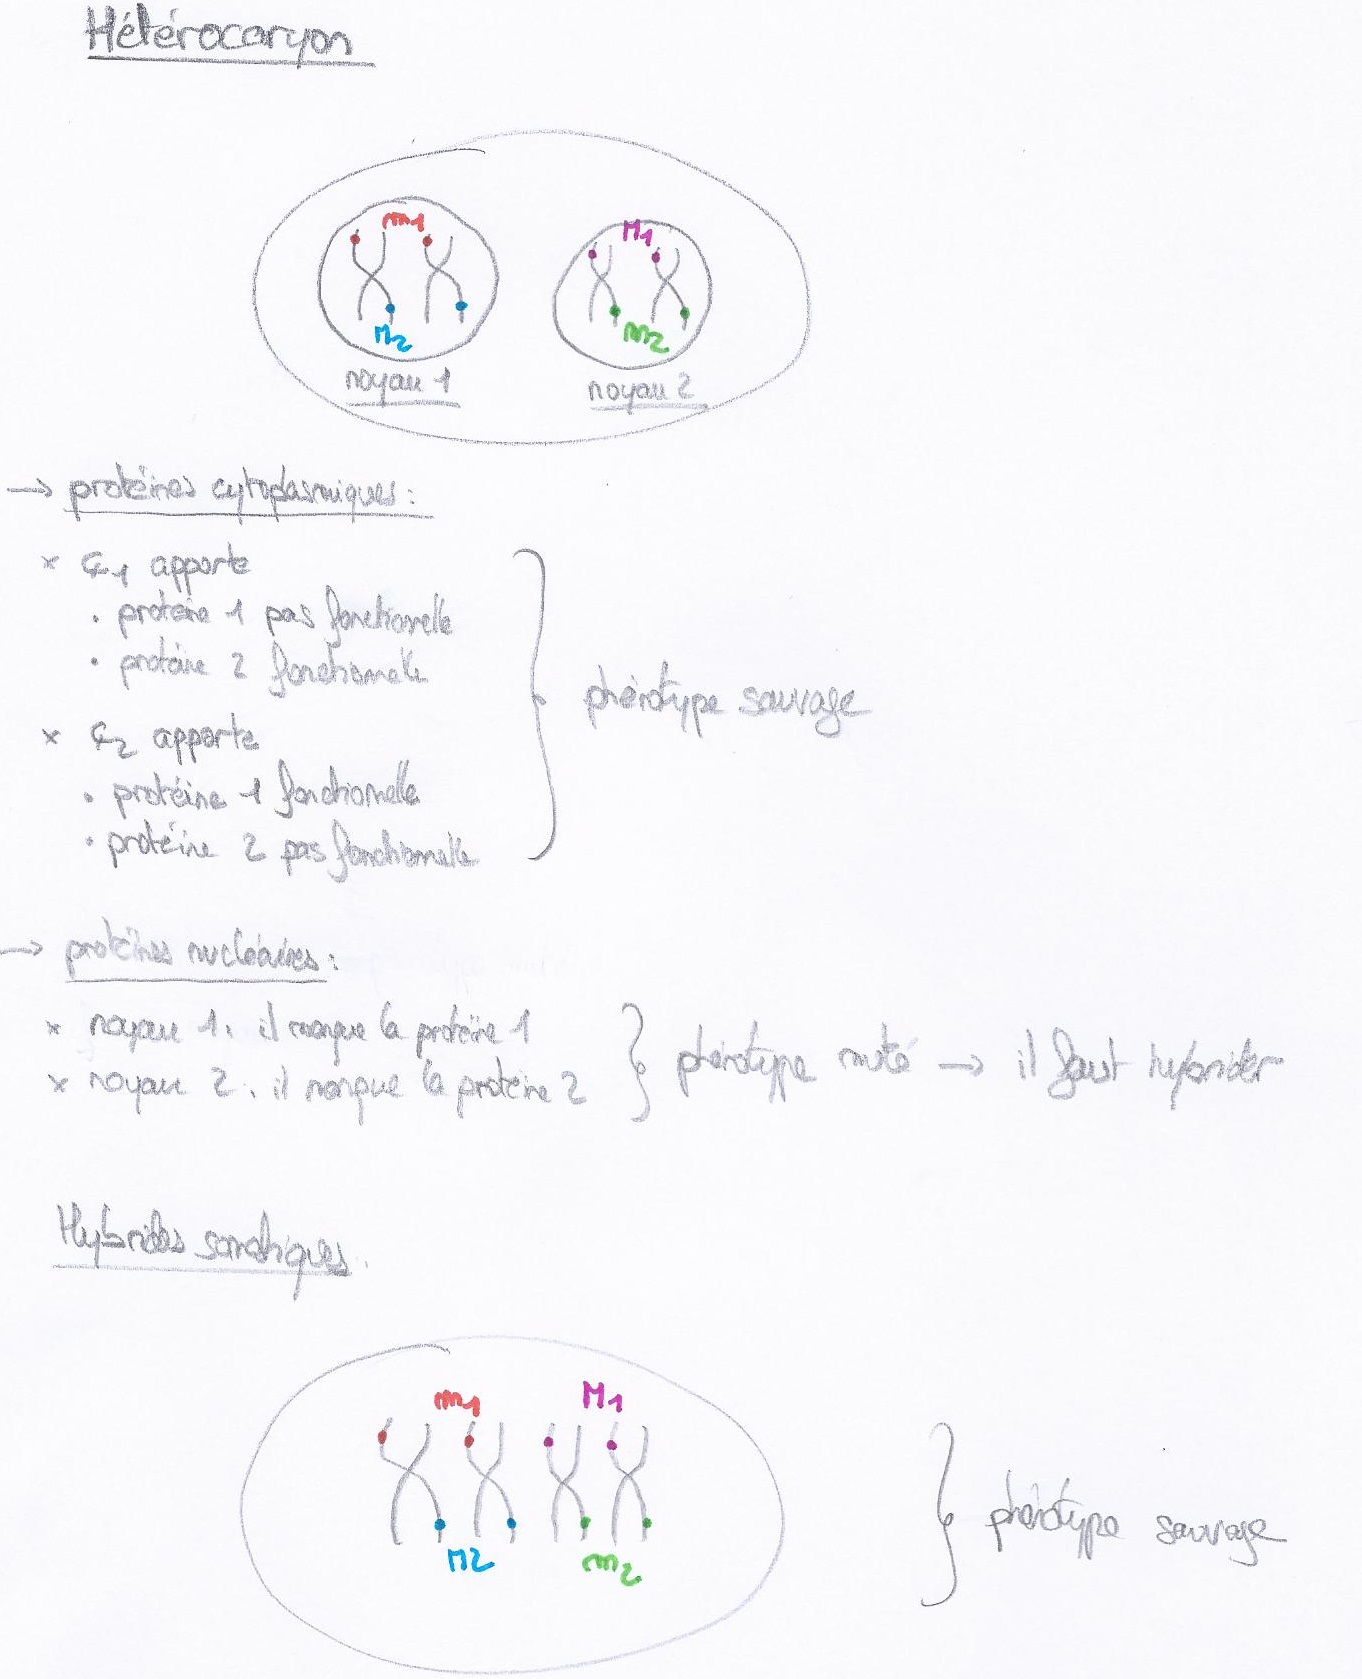 Hétérocaryon
m1
M1
M2
m2
noyau 1
noyau 2
→ protéines cytoplasmiques :
× ¢1 apporte
. protéine 1 pas fonctionelle
. protéine 2 fonctionnelle
× ¢2 apporte
. protéine 1 fonctionnelle
. protéine 2 pas fonctionnelle
phénotype sauvage
→ protéines nucléaires :
× noyau 1. il manque la protéine 1
× noyau 2. il manque la protéine 2
phénotype muté → il faut hybrider
Hybrides somatiques.
m1
M1
M2
m2
phénotype sauvage